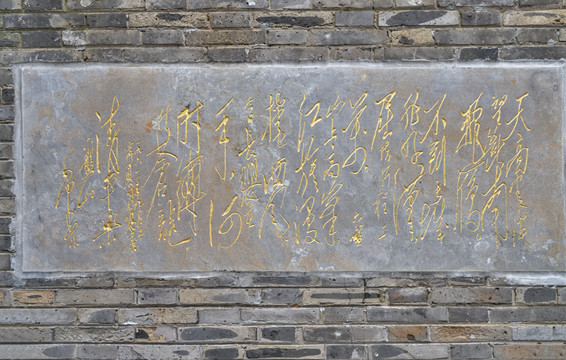 天高云淡
望断南
飞雁
不到长城
非好汉
屈指行程二
万六
盘山上高峰
红旗漫
卷西风
今日长缨
在手何
时缚
住苍龙
清平乐
毛泽东